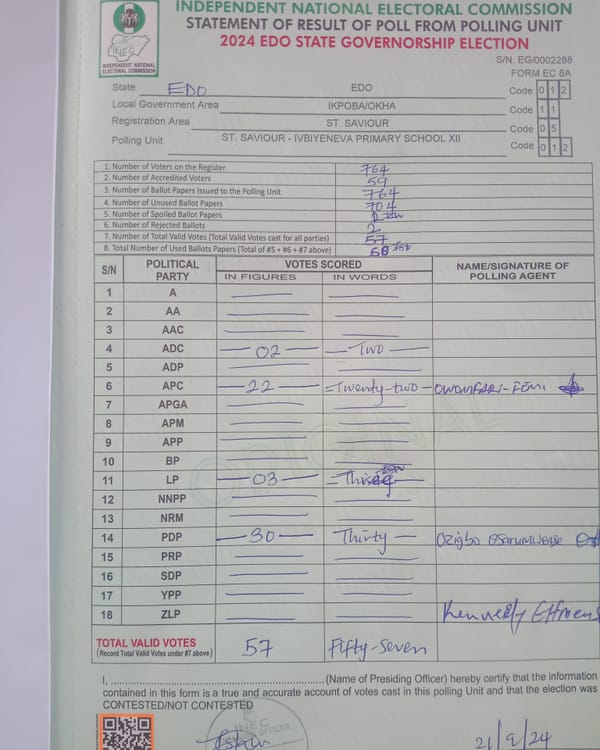 INDEPENDENT NATIONAL ELECTORAL COMMISSION
STATEMENT OF RESULT OF POLL FROM POLLING UNIT
2024 EDO STATE GOVERNORSHIP ELECTION
INEC
INDEPENDENT NATIONAL
ELECTORAL COMMISSION
S/N: EG/0002288
FORM EC 8A
State EDO EDO Code 0 1 2
Local Government Area IKPOBA/OKHA Code 1 1
Registration Area ST. SAVIOUR Code 0 5
Polling Unit ST. SAVIOUR - IVBIYENEVA PRIMARY SCHOOL XII Code 0 1 2
1. Number of Voters on the Register 764
2. Number of Accredited Voters 59
3. Number of Ballot Papers Issued to the Polling Unit 764
4. Number of Unused Ballot Papers 704
5. Number of Spoiled Ballot Papers
6. Number of Rejected Ballots 2
7. Number of Total Valid Votes (Total Valid Votes cast for all parties) 57
8. Total Number of Used Ballots Papers (Total of #5 + #6 + #7 above)
S/N POLITICAL PARTY VOTES SCORED NAME/SIGNATURE OF POLLING AGENT
IN FIGURES IN WORDS
1 A
2 AA
3 AAC
4 ADC 02 Two
5 ADP
6 APC 22 Twenty-two
7 APGA
8 APM
9 APP
10 BP
11 LP 03
12 NNPP
13 NRM
14 PDP 30 Thirty Ozigbo Osarumwense
15 PRP
16 SDP
17 YPP
18 ZLP Kennedy
TOTAL VALID VOTES 57 Fifty-Seven
(Record Total Valid Votes under #7 above)
ORIGINAL
I, ...................................................(Name of Presiding Officer) hereby certify that the information
contained in this form is a true and accurate account of votes cast in this polling Unit and that the election was
CONTESTED/NOT CONTESTED
INEC
OFFICER
21/9/24